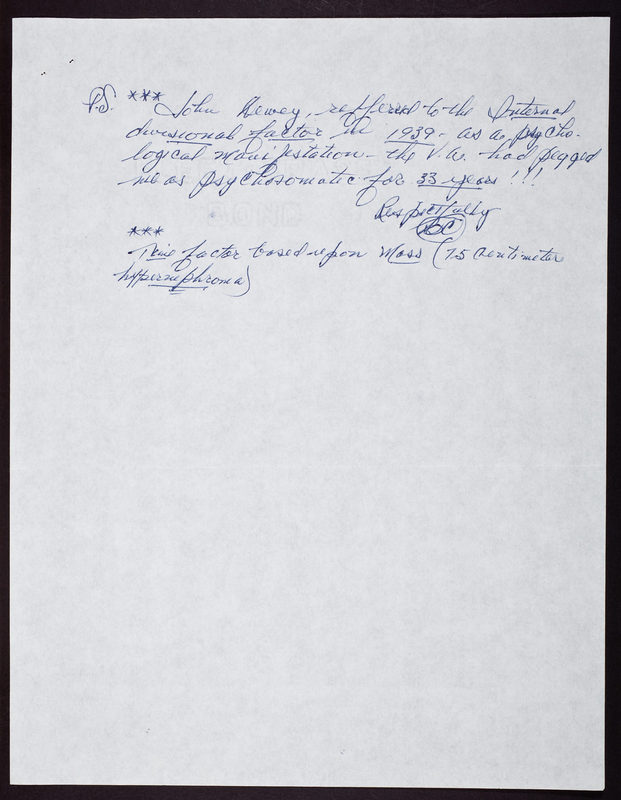 P.S. *** John Dewey, reffered to the Internal
divisional factor in 1939 - as a psycho-
logical manifestation - the V.A. had pegged
me as psychosomatic for 33 years !!!
Respectfully
BC
***
Time factor based upon Mass (7.5 Centimeter
hypernephroma)